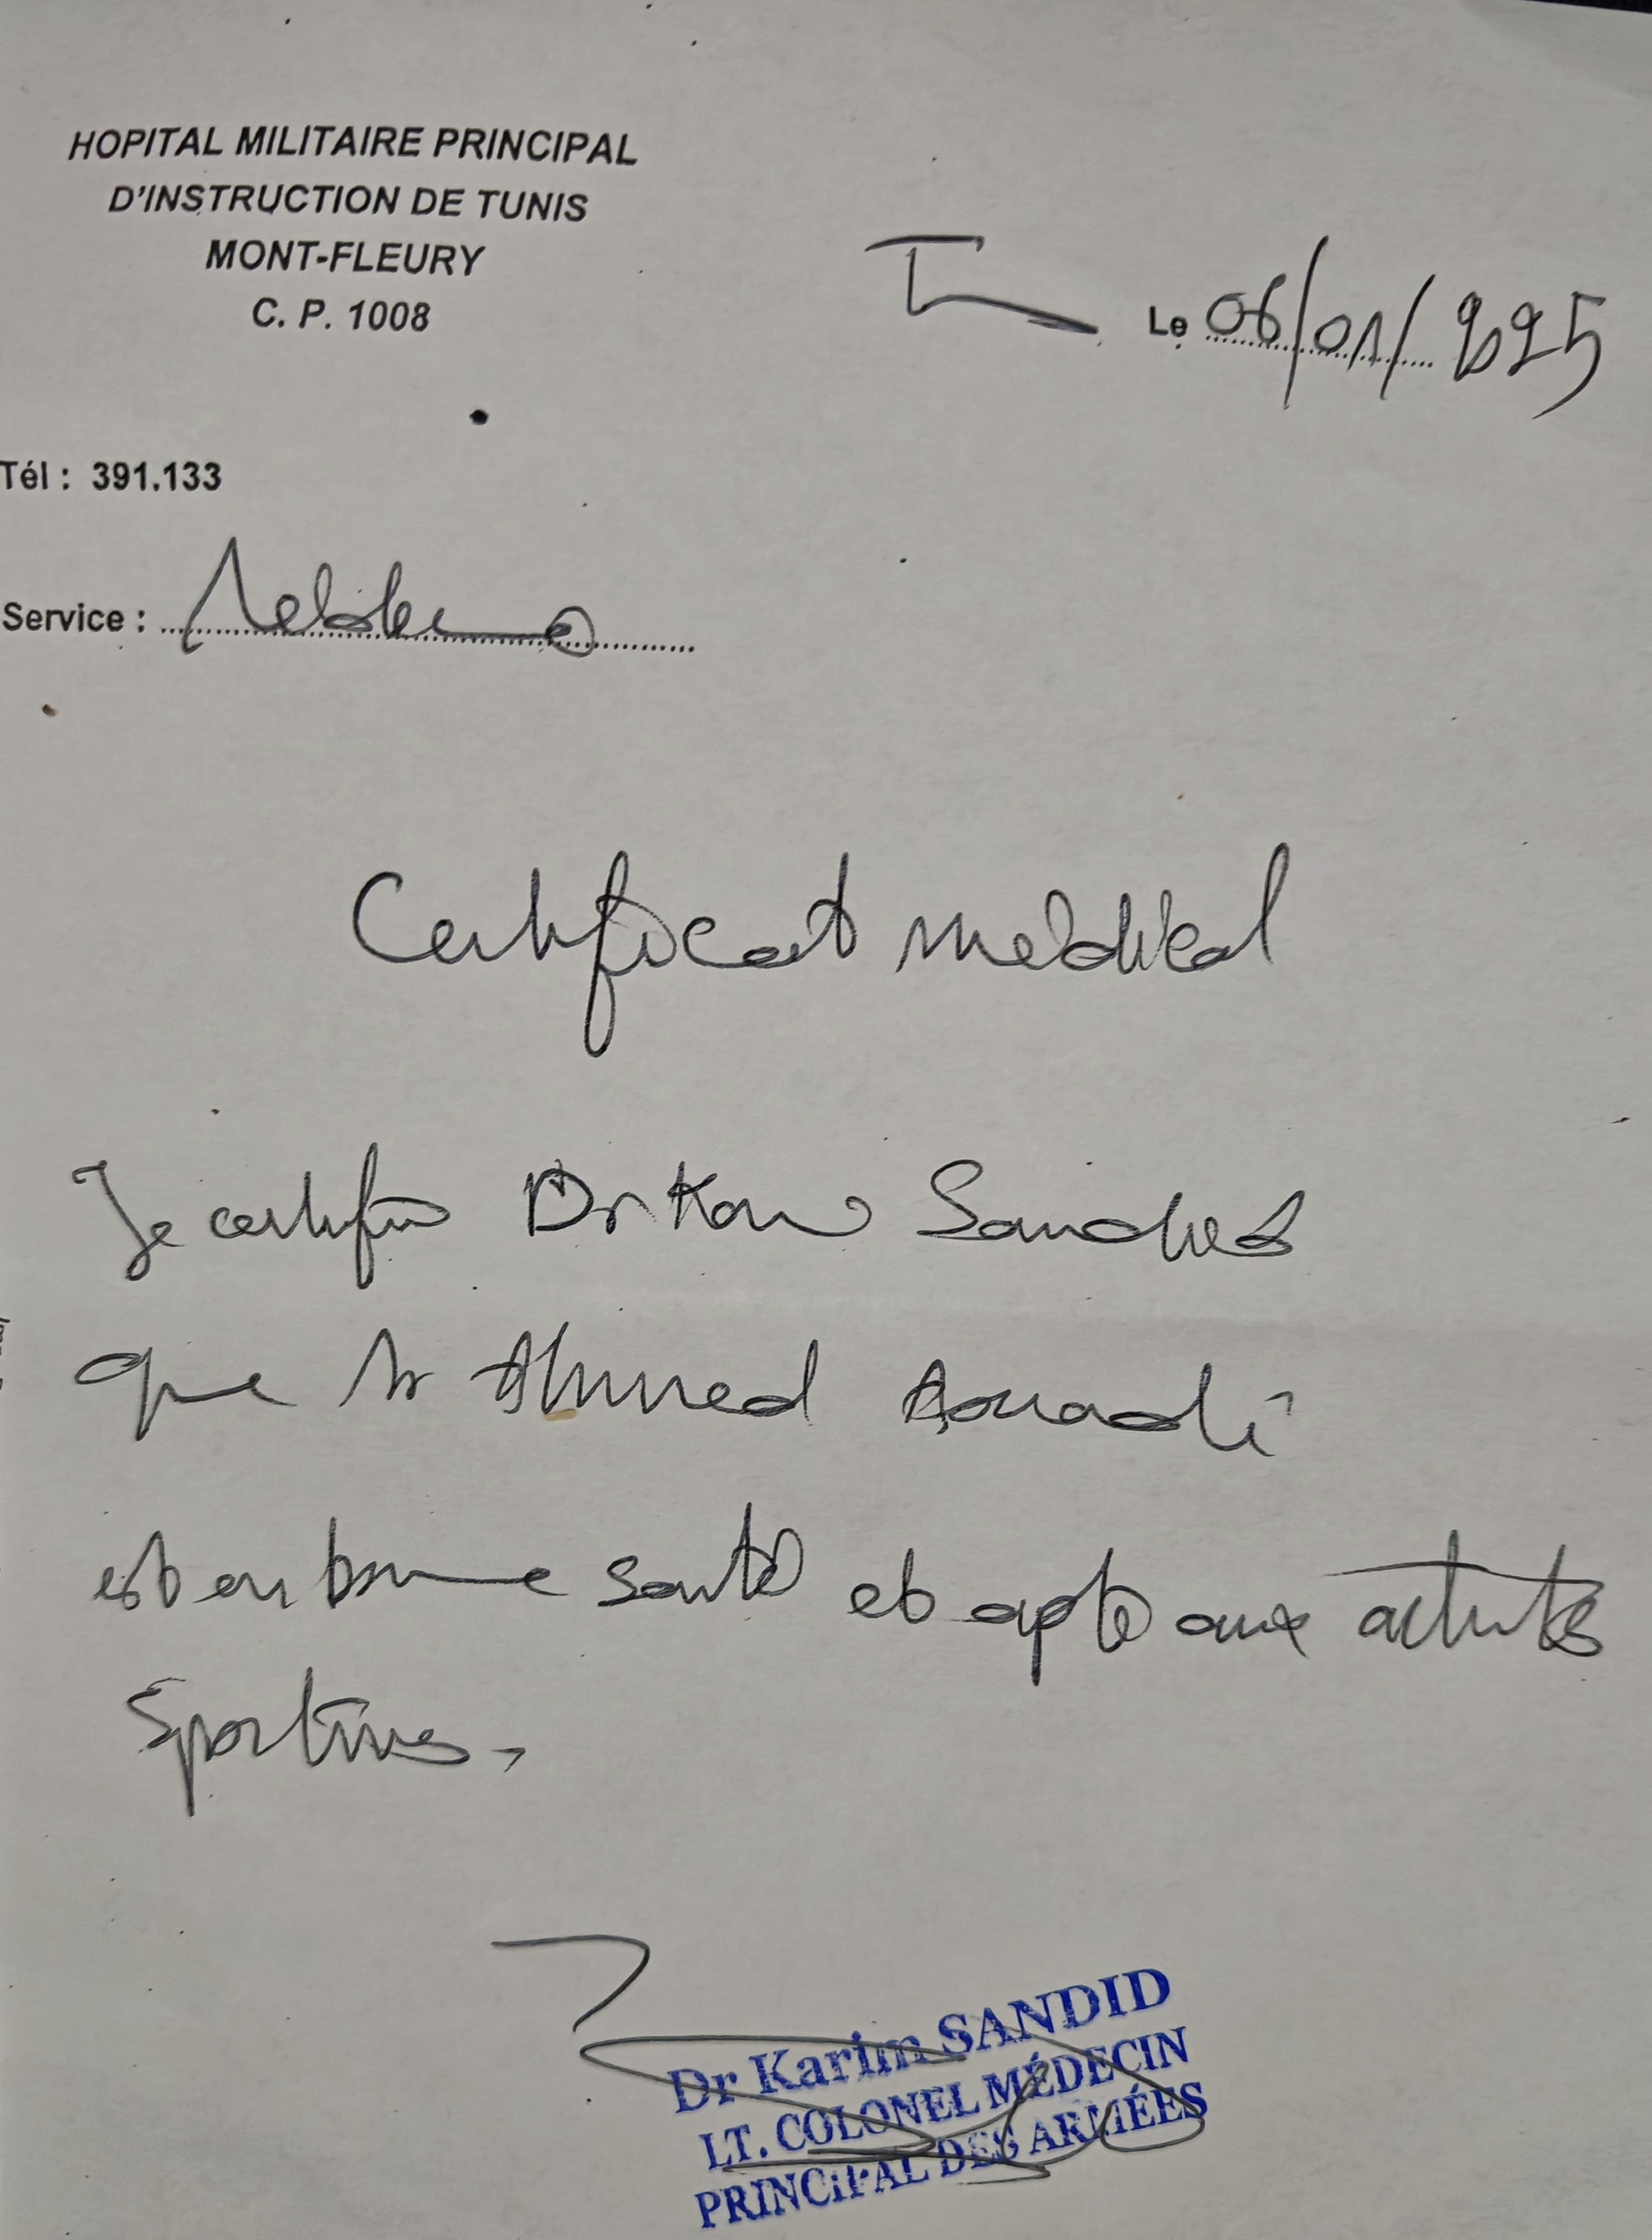 HOPITAL MILITAIRE PRINCIPAL
D'INSTRUCTION DE TUNIS
MONT-FLEURY
C. P. 1008
Le 06/01/2025
Tél : 391.133
Service :
Certificat médical
Je certifie Dr Karim Sandid
que Mr Ahmed Aouadi
est en bonne santé et apte aux activités
Sportives.
Dr Karim SANDID
LT. COLONEL MÉDECIN
PRINCIPAL DES ARMÉES